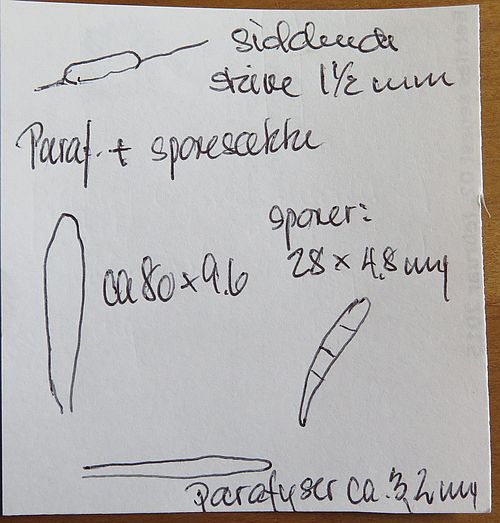 siddende
skive 1½ mm
Paraf. + sporesække
sporer:
ca 80 x 9.6
28 x 4.8 my
Parafyser ca. 3,2 my